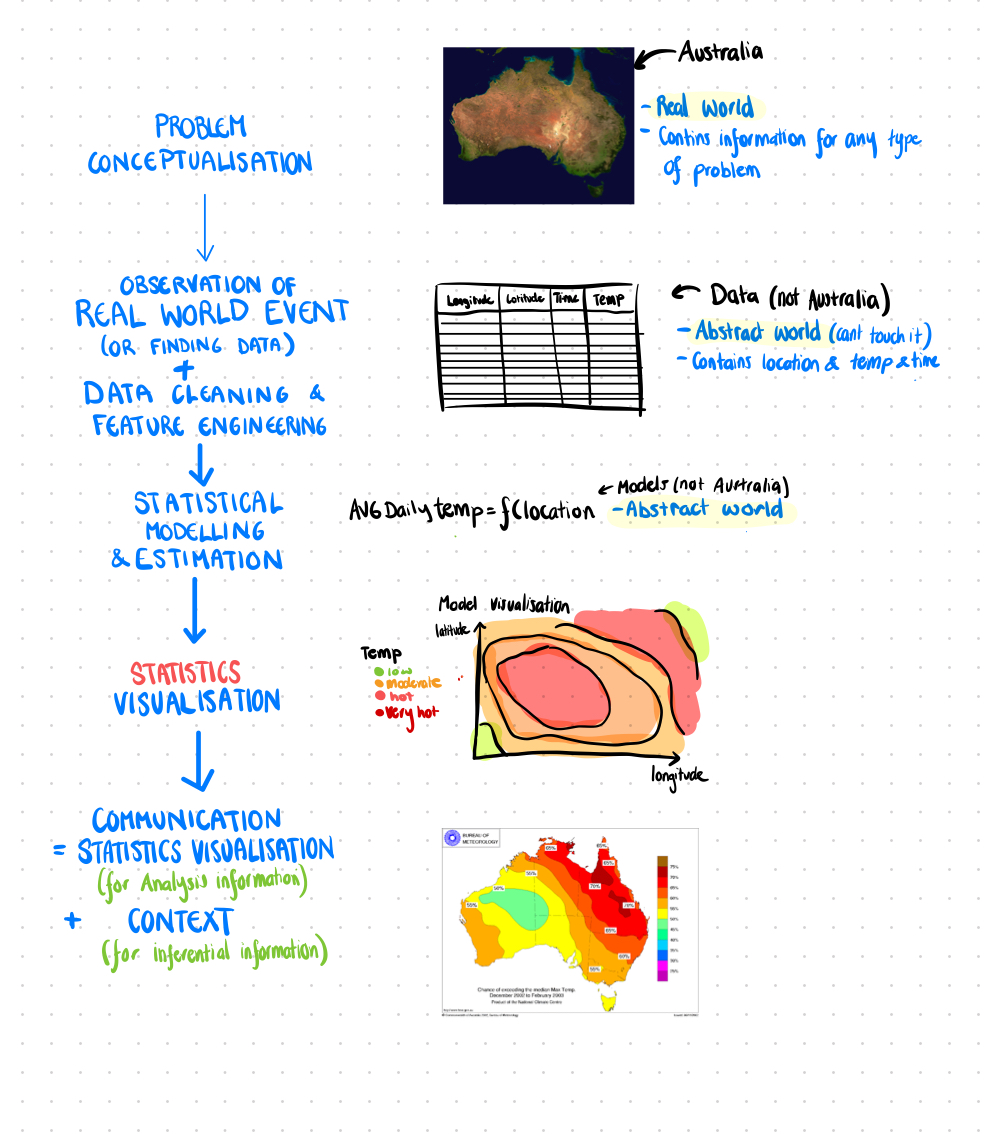 PROBLEM
CONCEPTUALISATION
Australia
- Real world
- Contins information for any type
of problem
OBSERVATION OF
REAL WORLD EVENT
(OR FINDING DATA)
+
DATA CLEANING &
FEATURE ENGINEERING
Longitude Latitude Time Temp
Data (not Australia)
- Abstract world (cant touch it)
- Contains location & temp & time
STATISTICAL
MODELLING
& ESTIMATION
AVG Daily temp = f(location
Models (not Australia)
- Abstract world
STATISTICS
VISUALISATION
Model visualisation
latitude
Temp
low
moderate
hot
very hot
longitude
COMMUNICATION
= STATISTICS VISUALISATION
(for Analysis information)
+ CONTEXT
(for inferential information)
BUREAU OF
METEOROLOGY
65%
65%
65%
55%
70%
50%
55%
70%
65%
60%
55%
75%
70%
65%
60%
55%
50%
45%
40%
35%
30%
25%
Chance of exceeding the median Max Temp.
December 2002 to February 2003
Product of the National Climate Centre